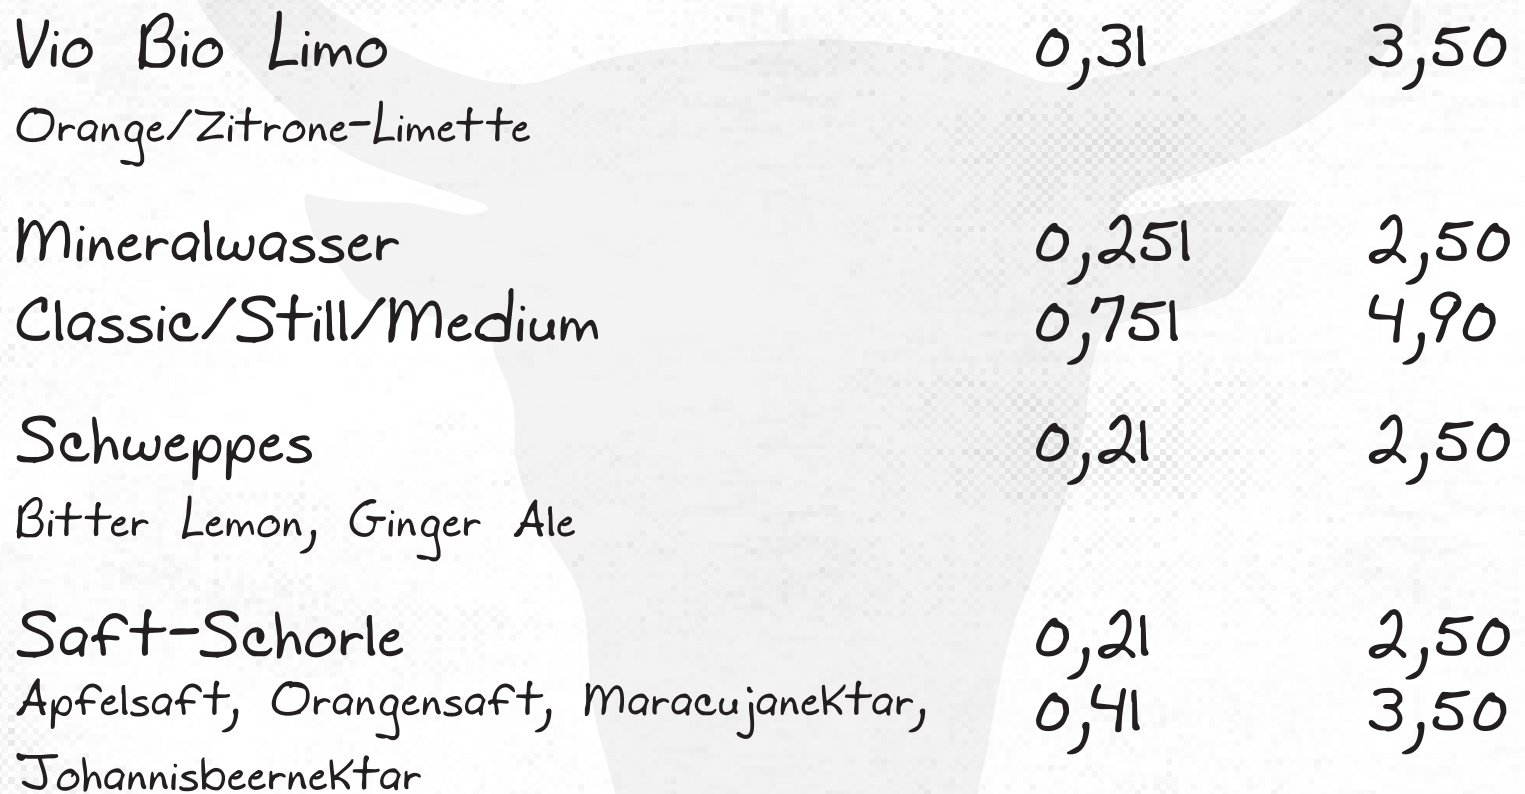 Vio Bio Limo 0,3l 3,50
Orange/Zitrone-Limette
Mineralwasser 0,25l 2,50
Classic/Still/Medium 0,75l 4,90
Schweppes 0,2l 2,50
Bitter Lemon, Ginger Ale
Saft-Schorle 0,2l 2,50
Apfelsaft, Orangensaft, Maracujanektar, 0,4l 3,50
Johannisbeernektar